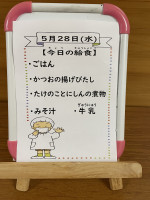 5月28日(水)
【今日の給食】
・ごはん
・かつおの揚げびたし
・たけのことにしんの煮物
・みそ汁 ・牛乳